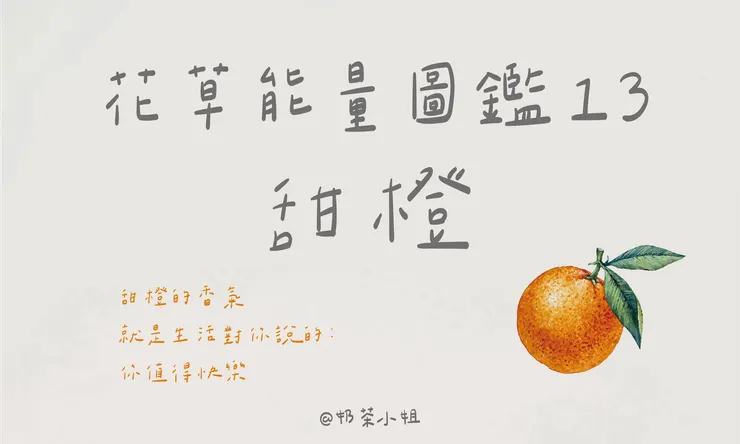 花草能量圖鑑13
甜橙
甜橙的香氣
就是生活對你說的：
你值得快樂
@奶茶小姐